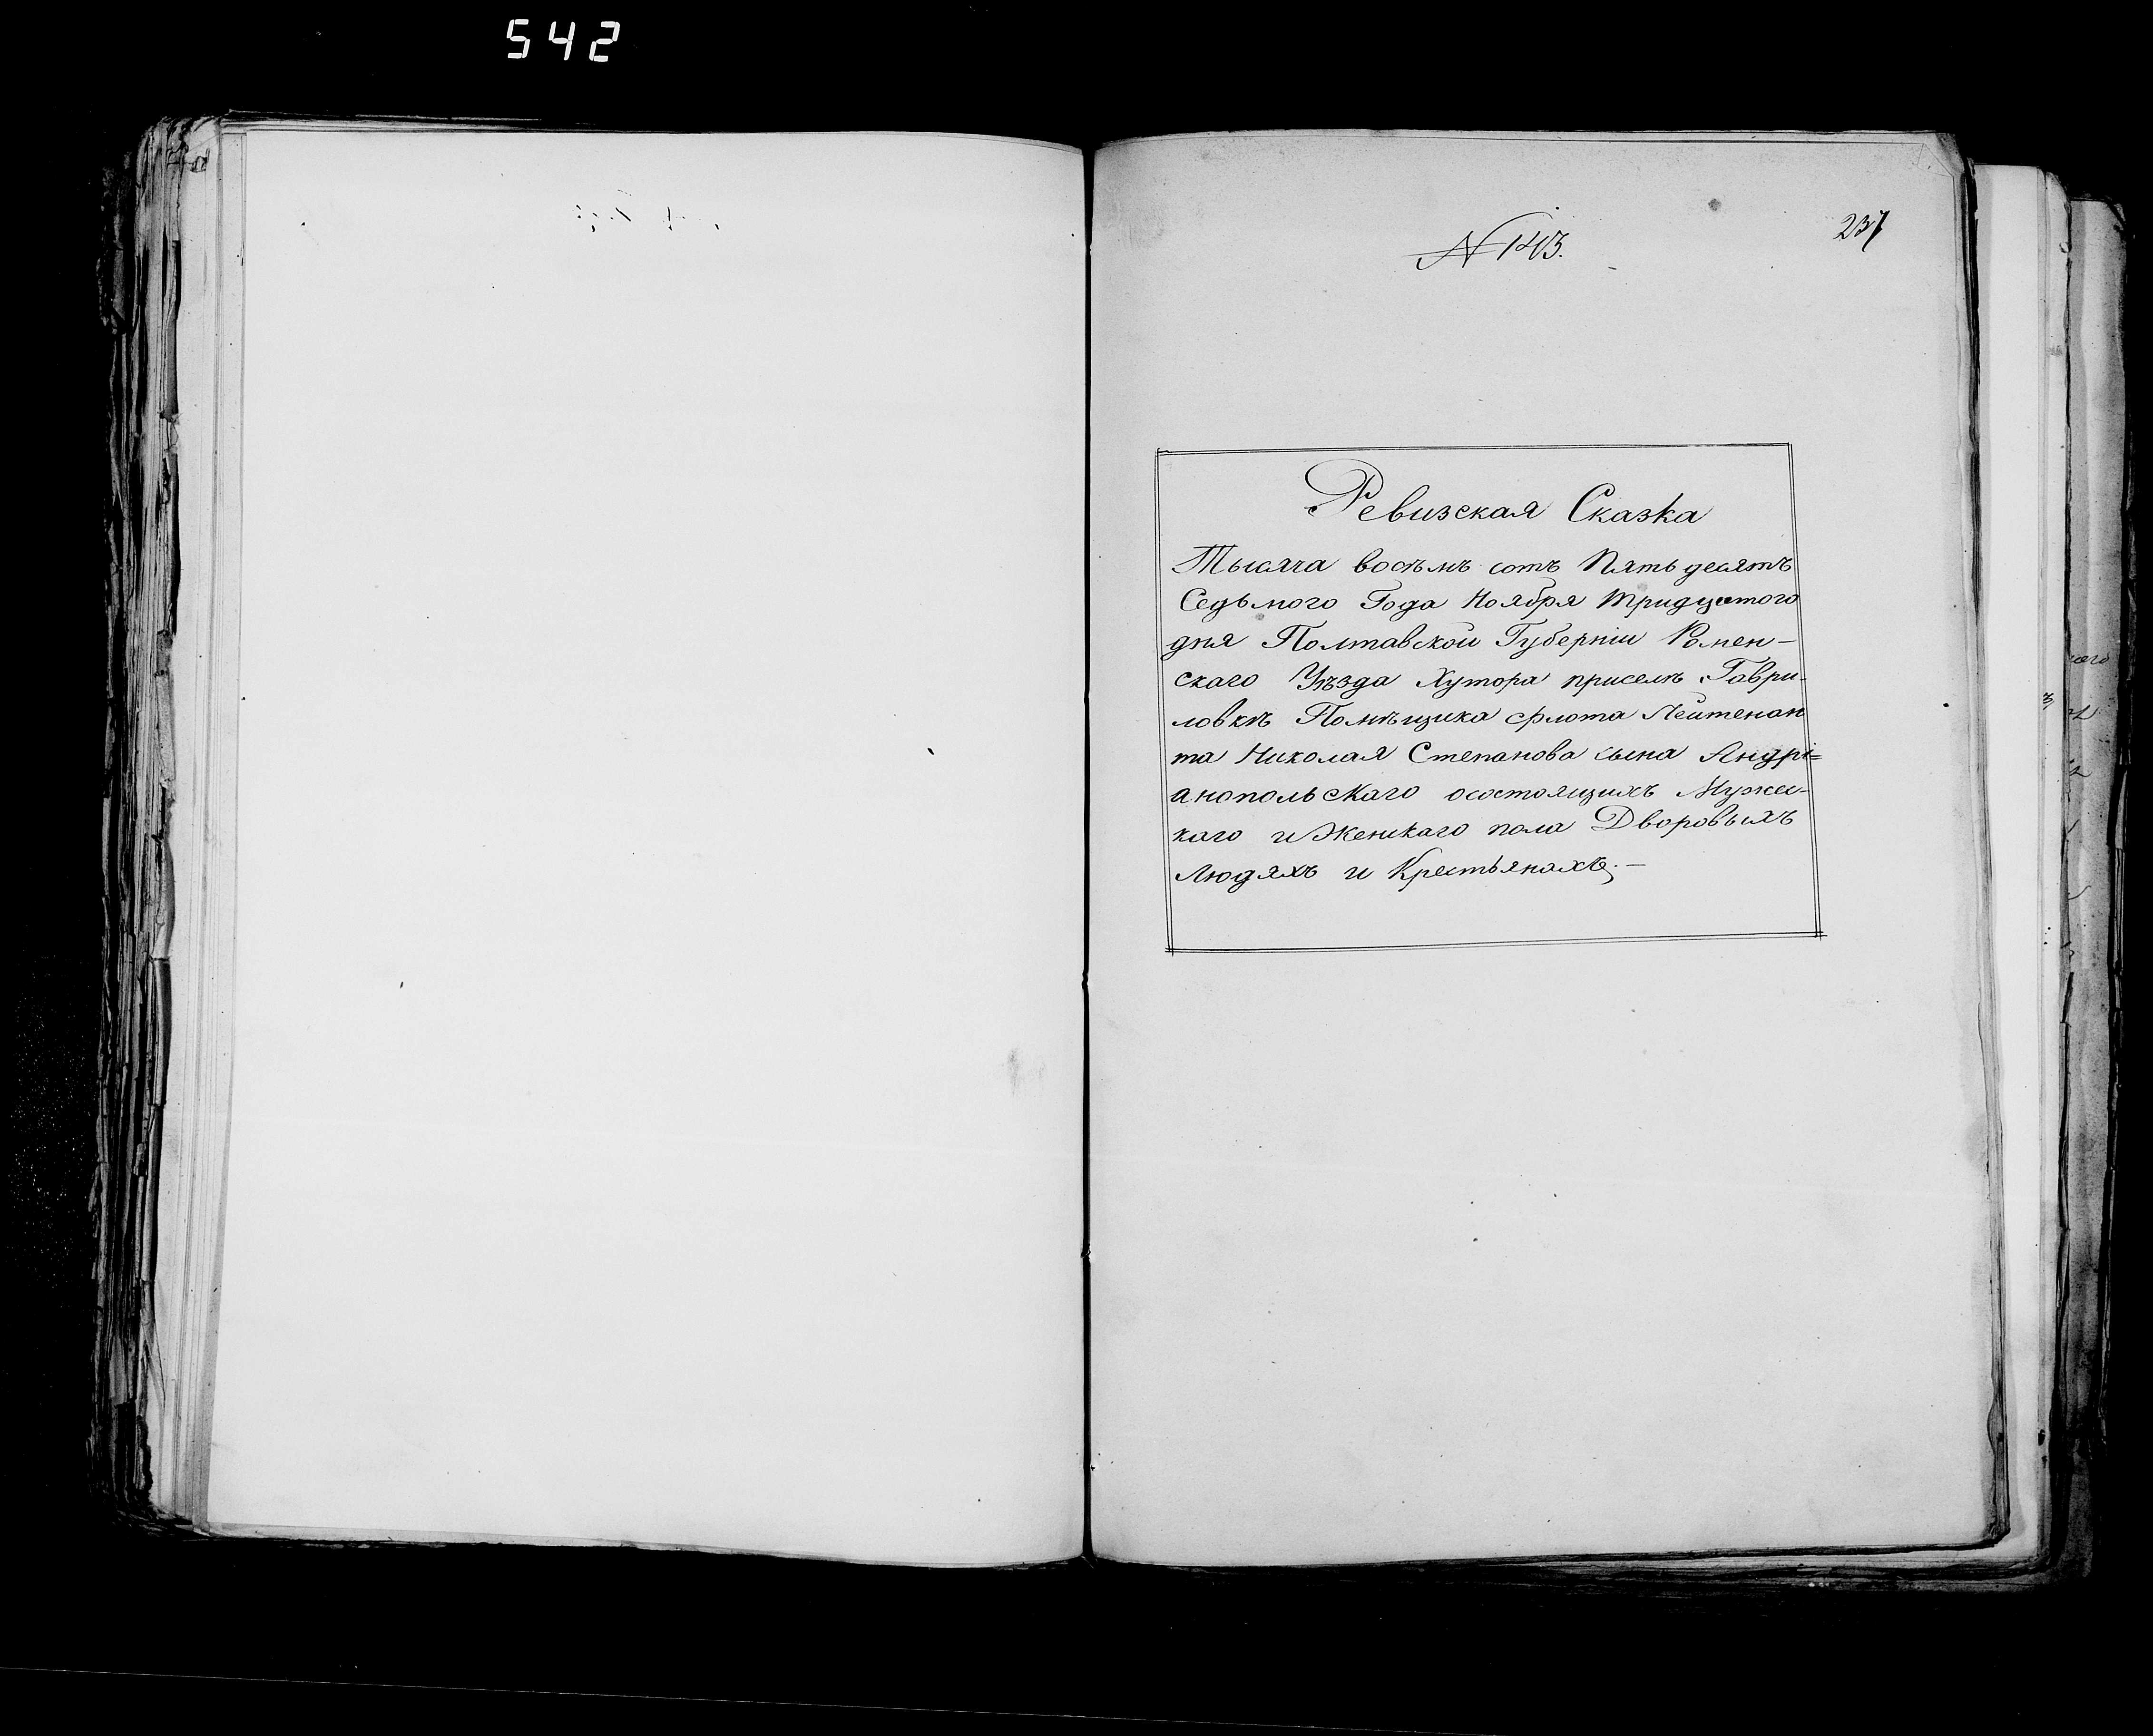 542
N 143.
237
Ревизская Сказка
Тысяча восѣмъ сотъ Пять десятъ
Седьмого Года Ноября Тридцатого
дня Полтавской Губерніи Ромен-
скаго Уѣзда Хутора приселѣ Гаври-
ловкѣ Помѣщика флота Лейтенан
та Николая Степанова сына Андрі=
анопольскаго осостоящихъ Мужес-
каго и Женскаго пола Дворовыхъ
Людяхъ и Крестьянахъ. —